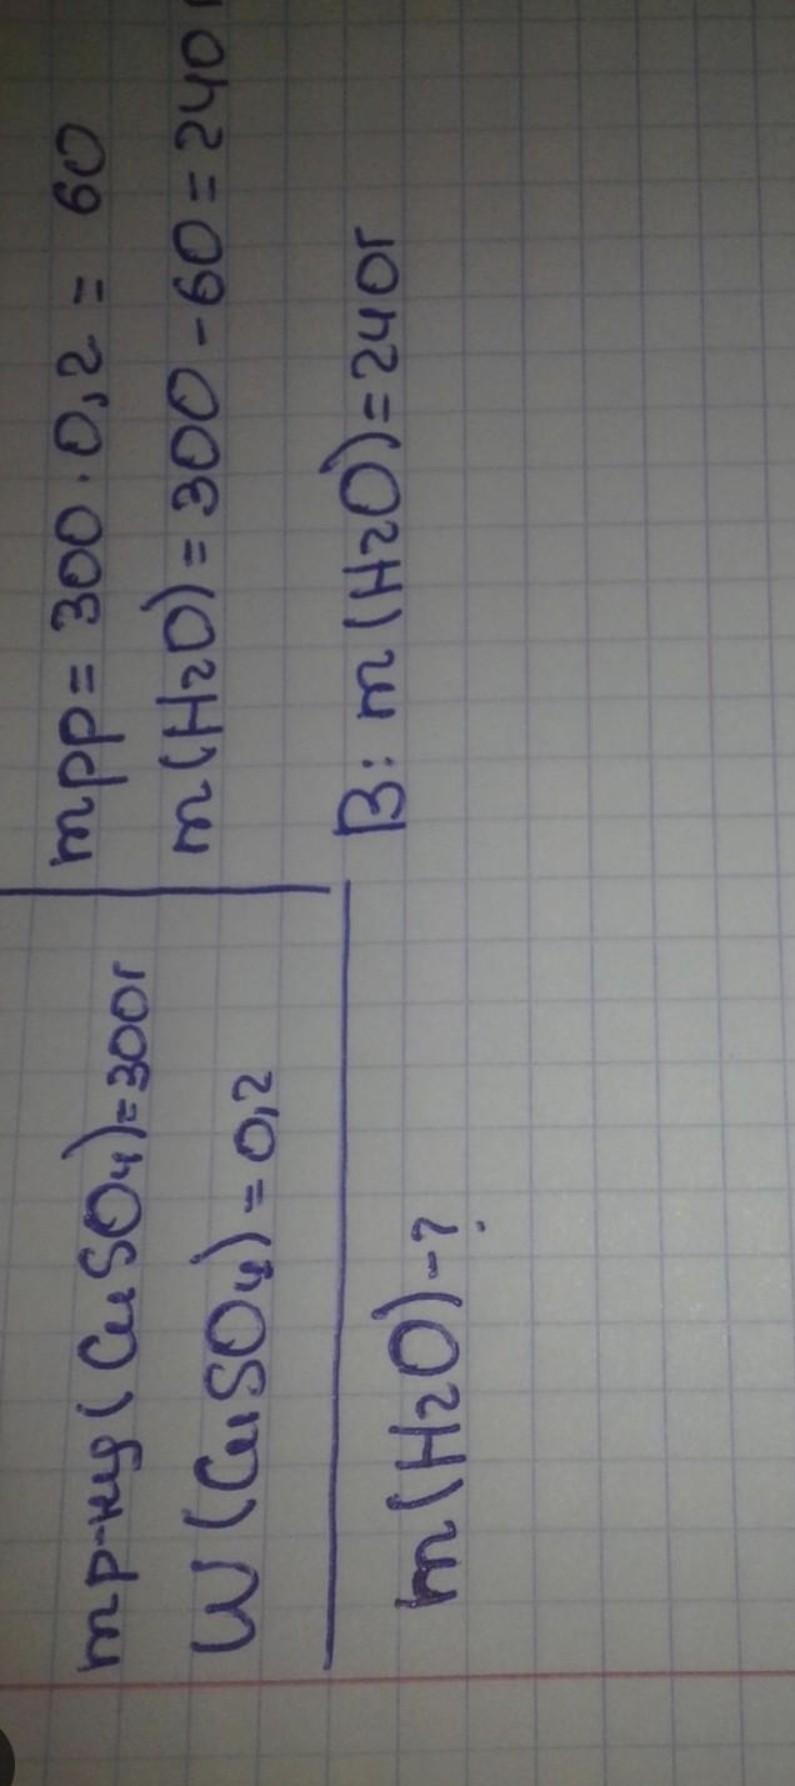 mр-ну(CuSO4)=300г
W(CuSO4)=0,2
m(H2O)-?
mрр=300·0,2=60
m(H2O)=300-60=240г
В: m(H2O)=240г